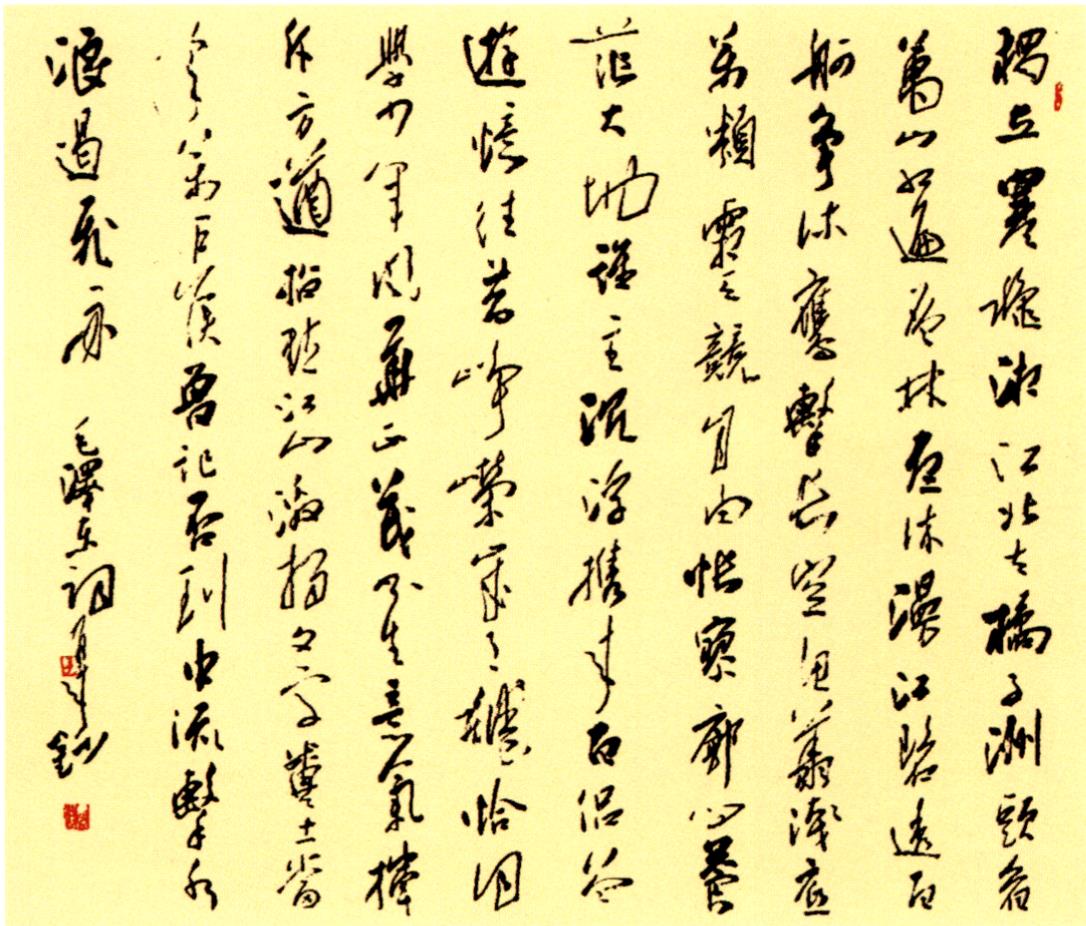 獨立寒秋湘江北去橘子洲頭看
萬山紅遍層林盡染漫江碧透百
舸爭流鷹擊長空魚翔淺底
萬類霜天競自由悵寥廓問蒼
茫大地誰主沉浮攜來百侣曾
遊憶往昔崢嶸歲月稠恰同
學少年風華正茂書生意氣揮
斥方遒指點江山激揚文字糞土當
年萬户侯曾記否到中流擊水
浪遏飛舟 毛澤東詞 鈔